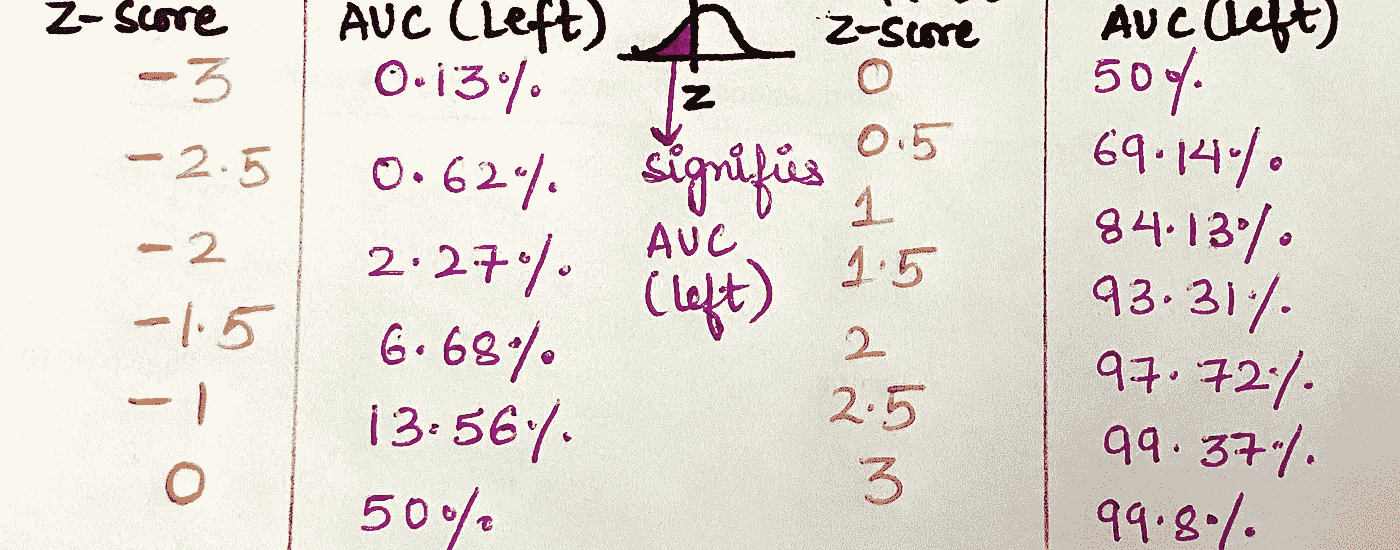 Z-Score AUC (Left)
-3 0.13%
-2.5 0.62%
-2 2.27%
-1.5 6.68%
-1 13.56%
0 50%
Z
signifies
AUC
(left)
Z-Score AUC (left)
0 50%
0.5 69.14%
1 84.13%
1.5 93.31%
2 97.72%
2.5 99.37%
3 99.8%